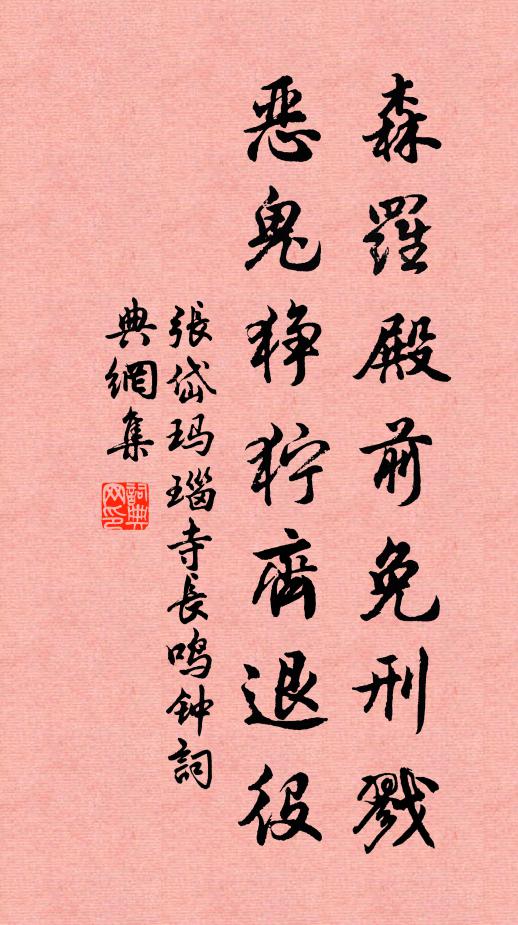 森羅殿前免刑戮
惡鬼狰狞齊退役
張岱玛瑙寺長鸣钟詞
典網集
詞典网印